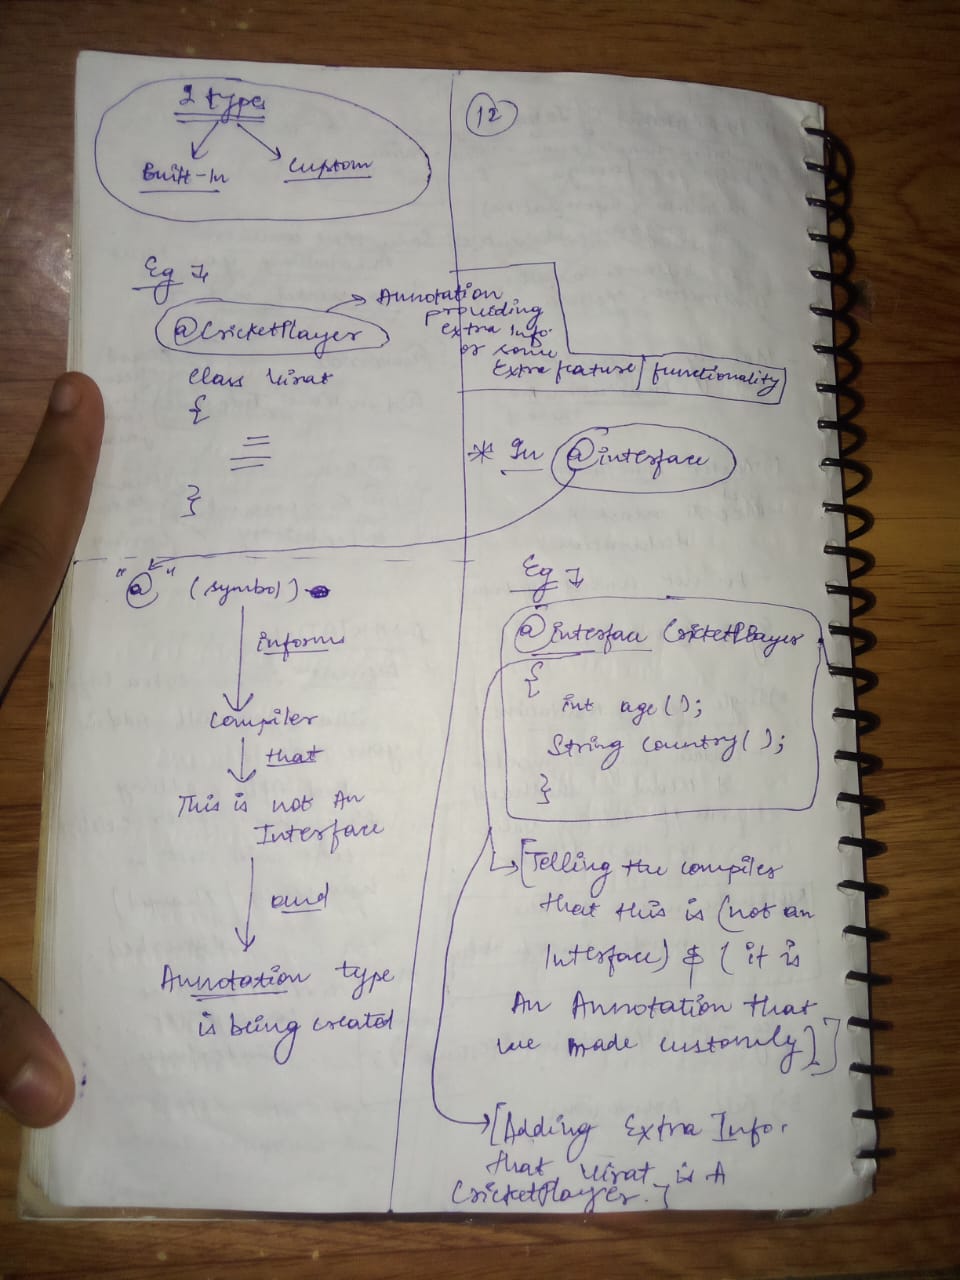 2 types
Built-In
Custom
Eg :-
@CricketPlayer
Class Virat
{
}
Annotation
providing
extra Info.
or some
Extra feature/functionality
"@" (symbol)
informs
Compiler
that
This is not An
Interface
and
Annotation type
is being created
12
* In @interface
Eg :-
@interface CricketPlayer
{
int age();
String country();
}
[Telling the compiler
that this is (not an
Interface) & (it is
An Annotation that
we made customly)]
[Adding Extra Info.
that Virat is A
CricketPlayer.]